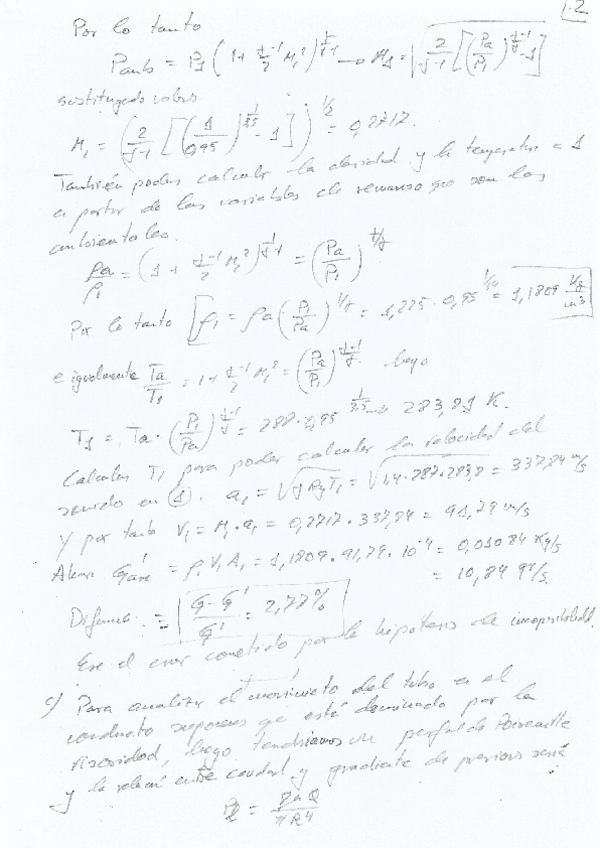 1.2
Por lo tanto
Pamb = P1 (1 + γ-1/2 M1²)^γ/γ-1 → M1 = √(2/γ-1 [(Pa/P1)^γ-1/γ - 1])
sustituyendo valores
M1 = (2/γ-1 [(1/0,95)^1/3,5 - 1])^1/2 = 0,2717.
También podemos calcular la densidad y la temperatura en 1
a partir de las variables de remanso que son las
ambientales.
ρa/ρ1 = (1 + γ-1/2 M1²)^1/γ-1 = (Pa/P1)^1/γ
Por lo tanto ρ1 = ρa (P1/Pa)^1/γ = 1,225 · 0,95^1/1,4 = 1,1809 kg/m3
e igualmente Ta/T1 = 1 + γ-1/2 M1² = (Pa/P1)^γ-1/γ luego
T1 = Ta · (P1/Pa)^γ-1/γ = 288 · 0,95^1/3,5 = 283,81 K.
Calculamos T1 para poder calcular la velocidad del
sonido en 1. a1 = √γ Rg T1 = √1,4·287·283,8 = 337,84 m/s
y por tanto V1 = M1 · a1 = 0,2717 · 337,84 = 91,79 m/s
Ahora G'aire = ρ1 V1 A1 = 1,1809 · 91,79 · 10^-4 = 0,01084 kg/s
= 10,84 gr/s.
Diferencia = G-G'/G' = 2,77%
Ese el error cometido por la hipótesis de incompresibilidad.
c) Para analizar el movimiento del tubo en el
conducto suponemos que está dominado por la
viscosidad, luego tendríamos un perfil de Poiseuille
y la relación entre caudal y gradiente de presiones será
= 8μQ/πR4